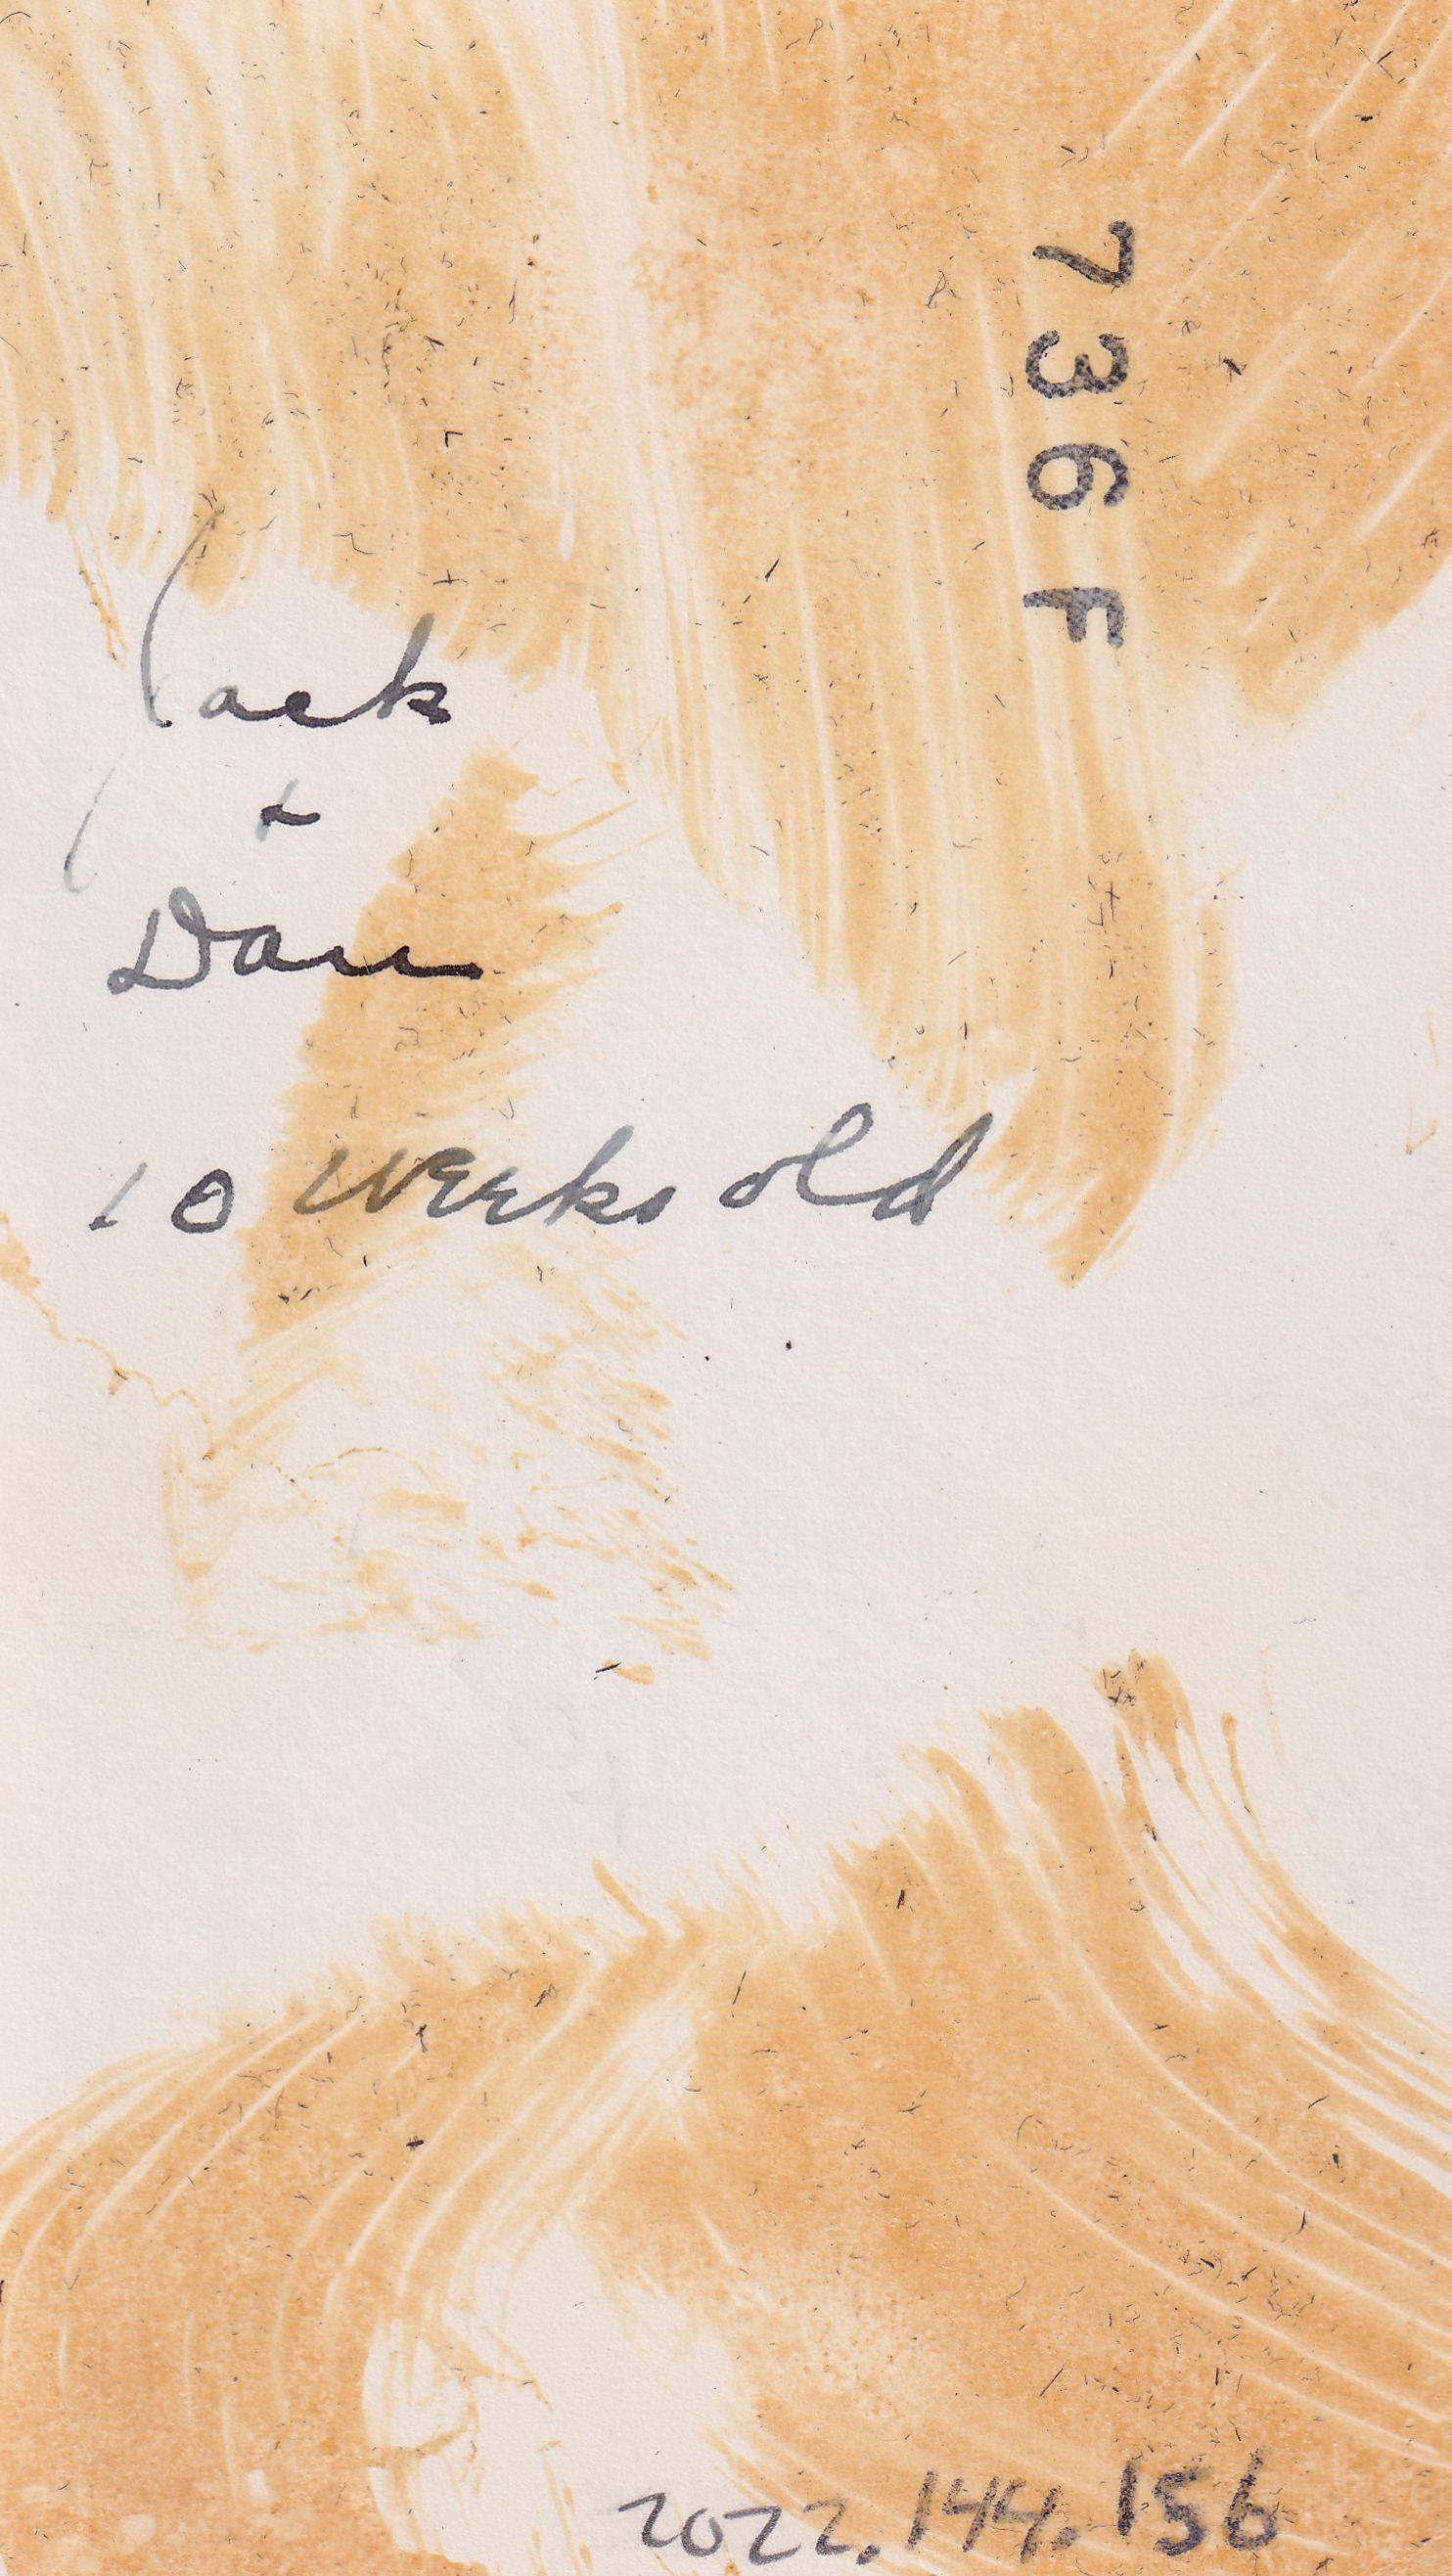 736F
Jack
+
Dan
10 weeks old
2022.144.156